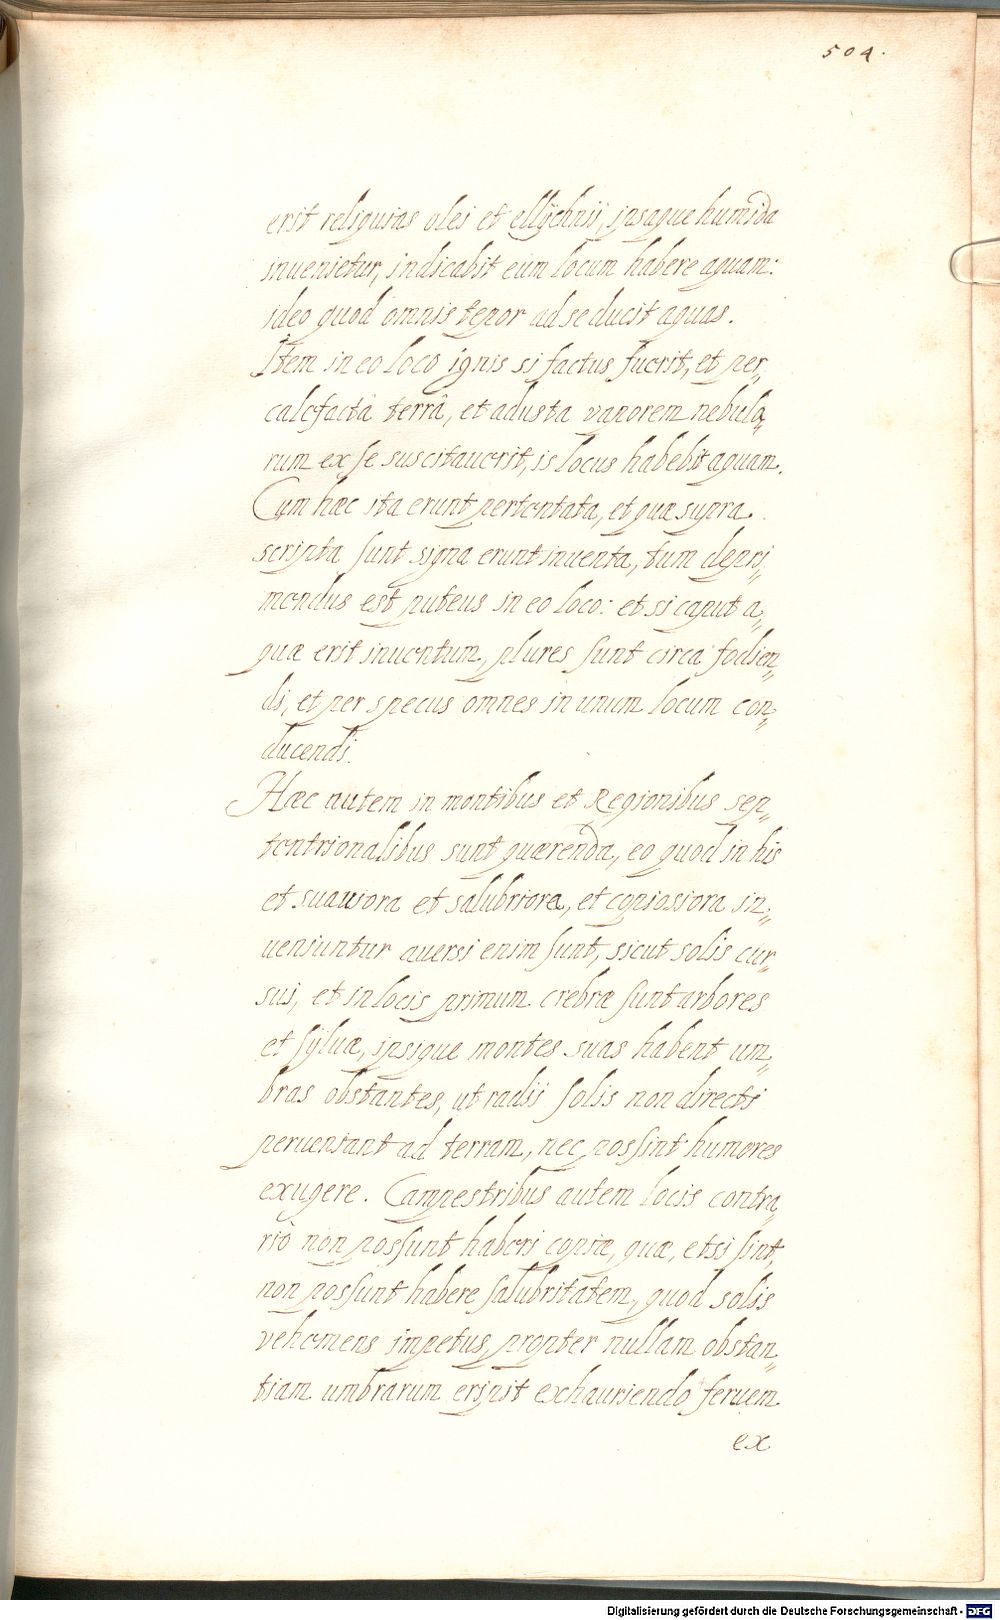 504.
erit reliquias olei et ellÿchnii, ipsaque humida
inuenietur, indicabit eum locum habere aquam:
ideo quod omnis tepor ad se ducit aquas.
Item in eo loco ignis si factus fuerit, et per„
calefactâ terrâ, et adusta vaporem nebulo„
rum ex se suscitauerit, is locus habebit aquam.
Cum hæc ita erunt pertentata, et quæ supra
scripta sunt signa erunt inuenta, tum depri„
mendus est puteus in eo loco: et si caput a„
quæ erit inuentum, plures sunt circa fodien„
di, et per specus omnes in unum locum con„
ducendi.
Hæc autem in montibus et Regionibus sep„
tentrionalibus sunt quærenda, eo quod in his
et suauiora et salubriora, et copiosiora in„
ueniuntur auersi enim sunt, sicut solis cur„
sui, et in locis primum crebræ sunt arbores
et sÿluæ, ipsique montes suas habent um„
bras obstantes, ut radii solis non directi
perueniant ad terram, nec possint humores
exugere. Campestribus autem locis contra„
riò non possunt haberi copiæ, quæ, etsi sint,
non possunt habere salubritatem, quod solis
vehemens impetus, propter nullam obstan„
tiam umbrarum eripit exhauriendo feruem
ex
Digitalisierung gefördert durch die Deutsche Forschungsgemeinschaft - DFG